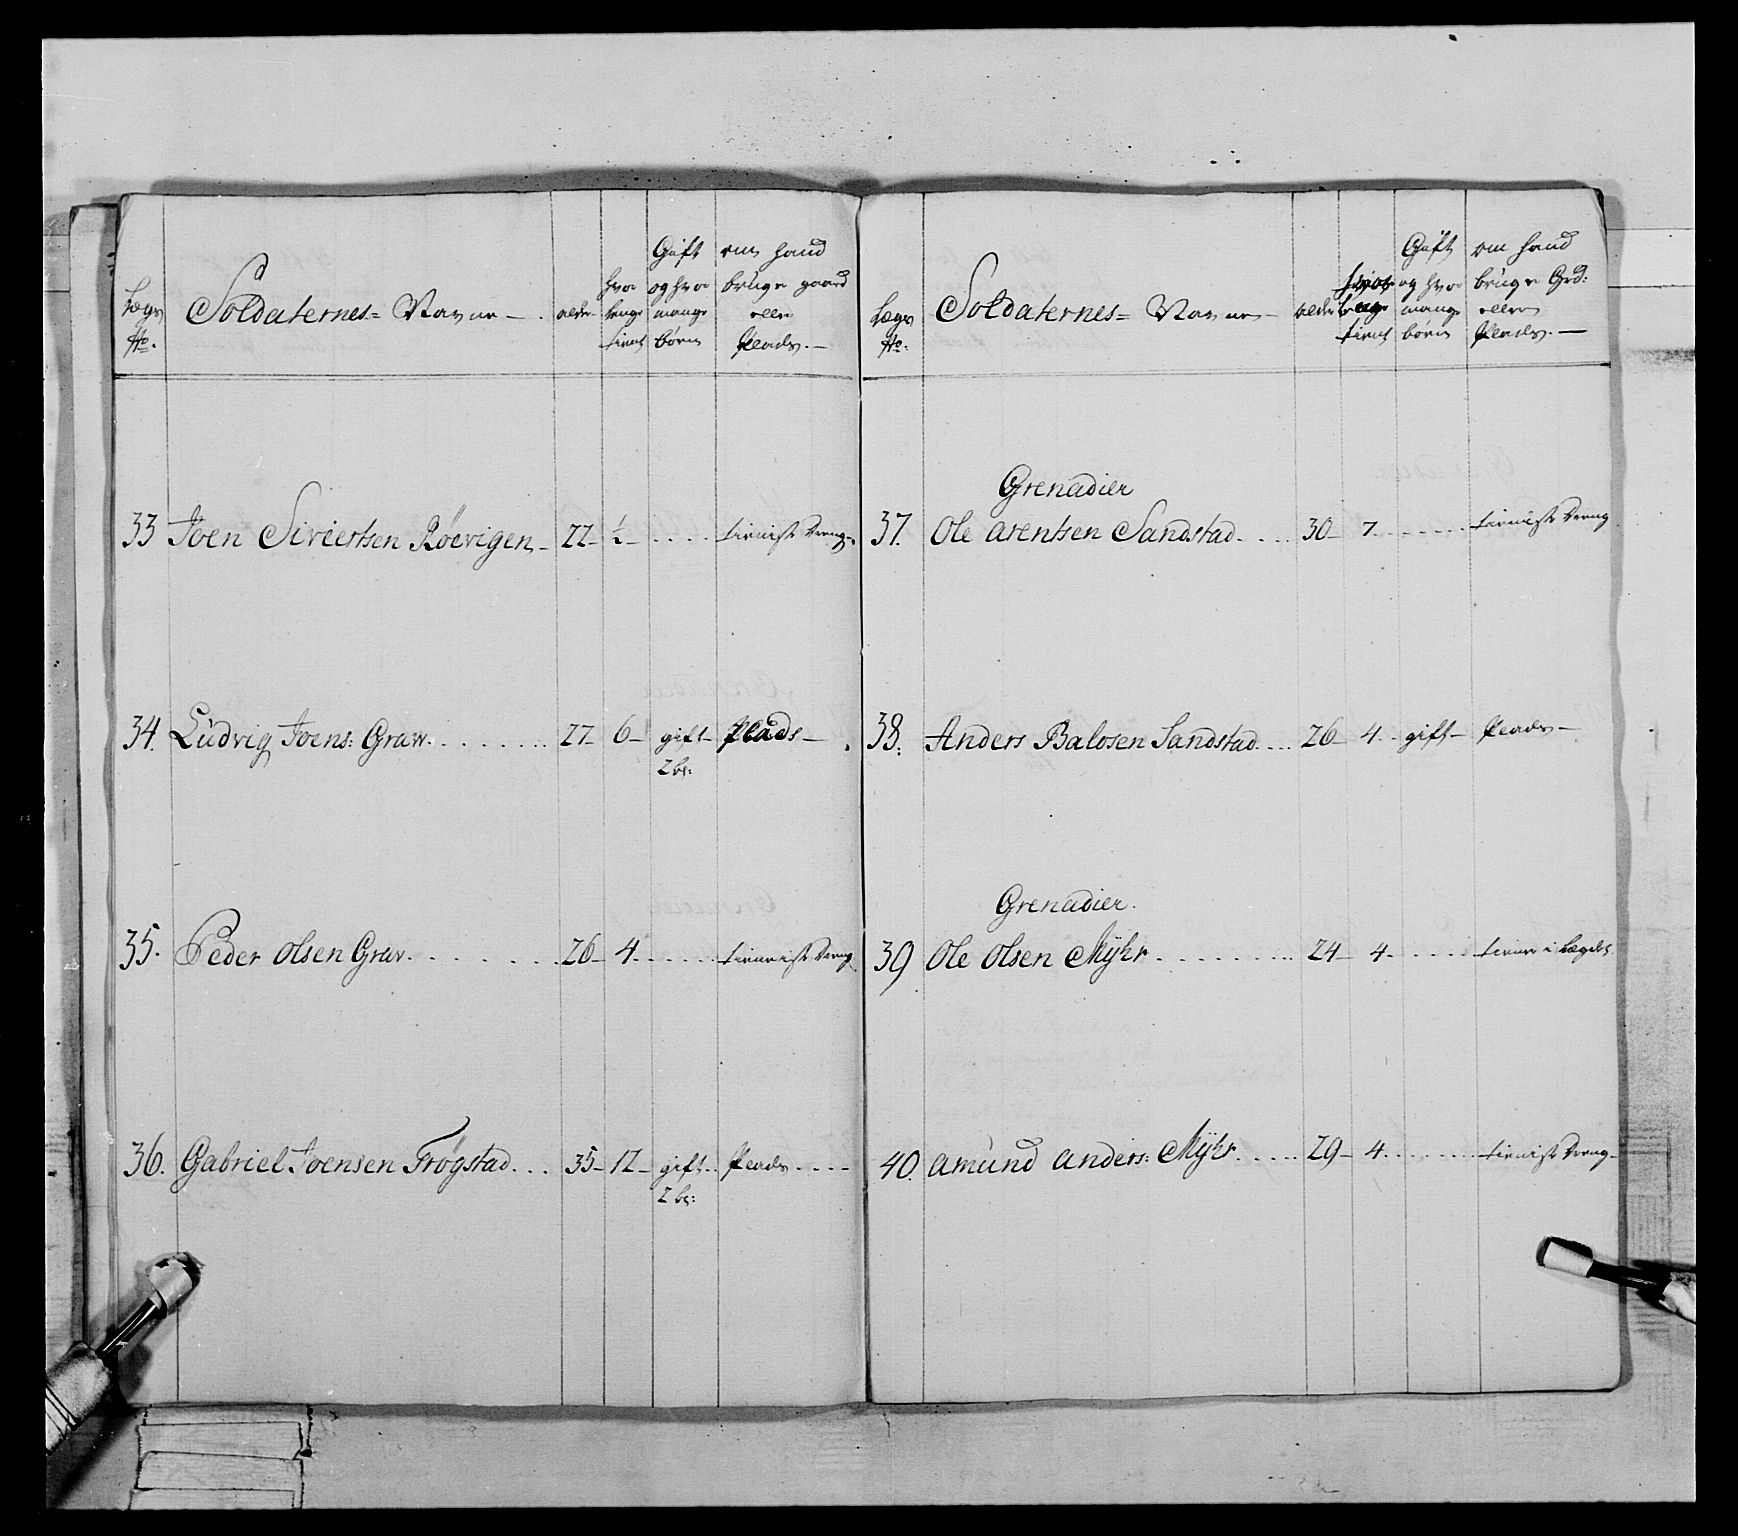 Lægs No. Soldaternes Navne alder hvor lenge tient Gift og hvor mange børn om hand bruger gaard eller Plads.
33 Joen Siviertsen Røevigen 22 ½ tienist dreng
34. Ludvig Joens: Graw 27 6 gift Plads
2 br:
35. Peder Olsen Graw 26 4 tienist dreng
36. Gabriel Joensen Frøgstad 35 12 gift Plads
2 br:
Lægs No: Soldaternes Navne alder hvor lenge tient Gift og hvor mange børn om hand bruger Grd: eller Plads.
Grenadier
37. Ole Arentsen Sandstad 30 7 tienist dreng
38. Anders Balosen Sandstad 26 4 gift Plads
Grenadier.
39 Ole Olsen Mÿhr 24 4 tiener i Lægdet
40. Amund Anders: Mÿhr 29 4 tienist dreng